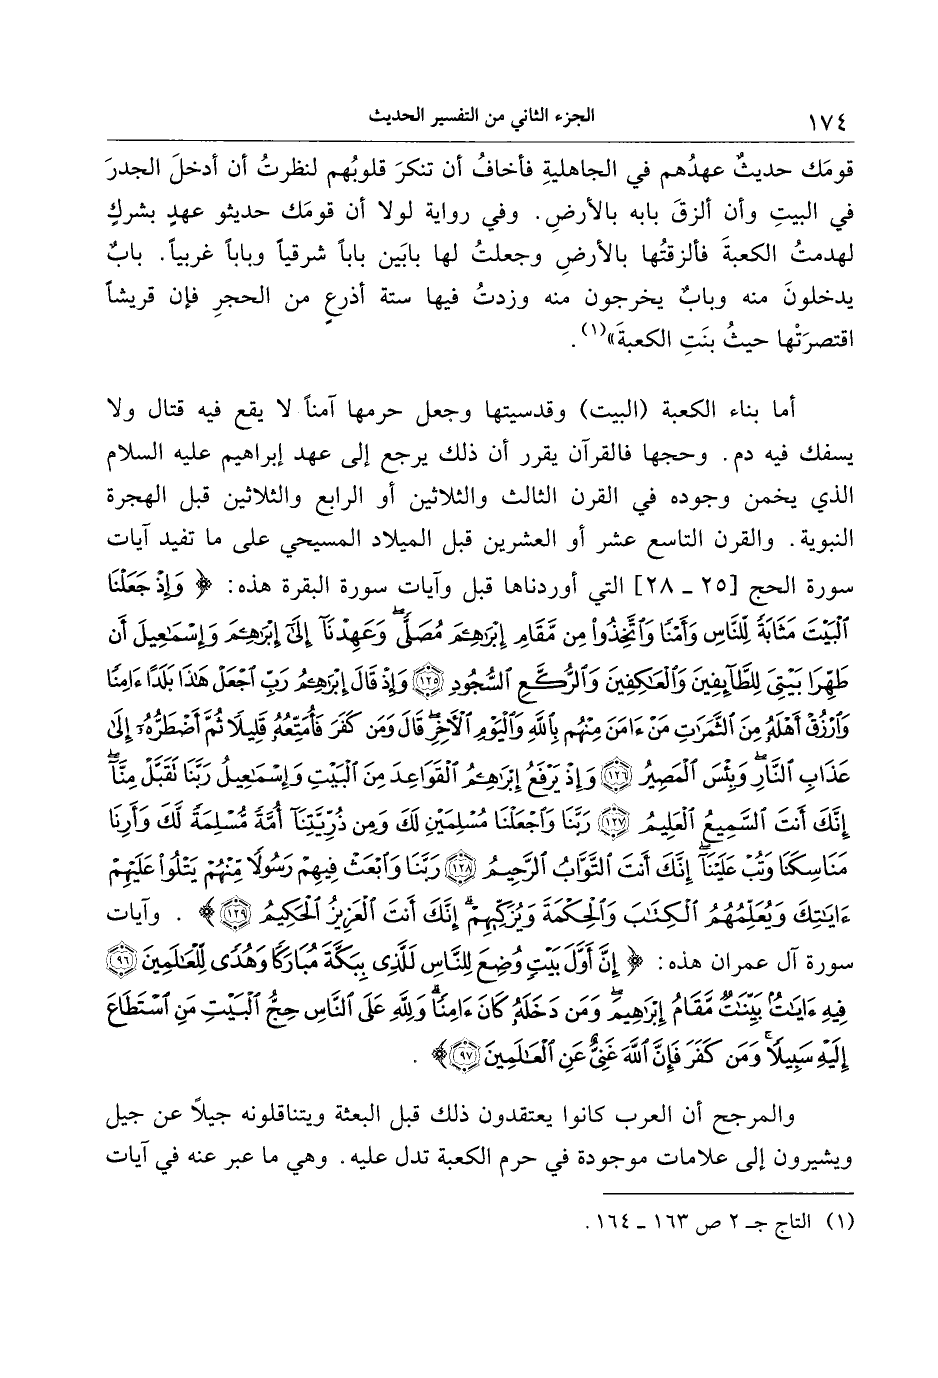 ١٧٤
الجزء الثاني من التفسير الحديث
قومَك حديثٌ عهدُهم في الجاهليةِ فأخافُ أن تنكرَ قلوبُهم لنظرتُ أن أدخلَ الجدرَ
في البيتِ وأن ألزقَ بابه بالأرضِ. وفي رواية لولا أن قومَك حديثو عهدٍ بشركٍ
لهدمتُ الكعبةَ فألزقتُها بالأرضِ وجعلتُ لها بابَين باباً شرقياً وباباً غربياً. بابٌ
يدخلونَ منه وبابٌ يخرجون منه وزدتُ فيها ستة أذرعٍ من الحجرِ فإن قريشاً
اقتصرَتْها حيثُ بنَتِ الكعبةَ»(١).
أما بناء الكعبة (البيت) وقدسيتها وجعل حرمها آمناً لا يقع فيه قتال ولا
يسفك فيه دم. وحجها فالقرآن يقرر أن ذلك يرجع إلى عهد إبراهيم عليه السلام
الذي يخمن وجوده في القرن الثالث والثلاثين أو الرابع والثلاثين قبل الهجرة
النبوية. والقرن التاسع عشر أو العشرين قبل الميلاد المسيحي على ما تفيد آيات
سورة الحج [٢٥ ـ ٢٨] التي أوردناها قبل وآيات سورة البقرة هذه: ﴿ وَإِذْ جَعَلْنَا
الْبَيْتَ مَثَابَةً لِّلنَّاسِ وَأَمْنًا وَاتَّخِذُواْ مِن مَّقَامِ إِبْرَٰهِـۧمَ مُصَلًّىۖ وَعَهِدْنَآ إِلَىٰٓ إِبْرَٰهِـۧمَ وَإِسْمَٰعِيلَ أَن
طَهِّرَا بَيْتِىَ لِلطَّآئِفِينَ وَالْعَٰكِفِينَ وَالرُّكَّعِ السُّجُودِ ﴿١٢٥﴾ وَإِذْ قَالَ إِبْرَٰهِـۧمُ رَبِّ اجْعَلْ هَٰذَا بَلَدًا ءَامِنًا
وَارْزُقْ أَهْلَهُۥ مِنَ الثَّمَرَٰتِ مَنْ ءَامَنَ مِنْهُم بِاللَّهِ وَالْيَوْمِ الْأٓخِرِۖ قَالَ وَمَن كَفَرَ فَأُمَتِّعُهُۥ قَلِيلًا ثُمَّ أَضْطَرُّهُۥٓ إِلَىٰ
عَذَابِ النَّارِۖ وَبِئْسَ الْمَصِيرُ ﴿١٢٦﴾ وَإِذْ يَرْفَعُ إِبْرَٰهِـۧمُ الْقَوَاعِدَ مِنَ الْبَيْتِ وَإِسْمَٰعِيلُ رَبَّنَا تَقَبَّلْ مِنَّآۖ
إِنَّكَ أَنتَ السَّمِيعُ الْعَلِيمُ ﴿١٢٧﴾ رَبَّنَا وَاجْعَلْنَا مُسْلِمَيْنِ لَكَ وَمِن ذُرِّيَّتِنَآ أُمَّةً مُّسْلِمَةً لَّكَ وَأَرِنَا
مَنَاسِكَنَا وَتُبْ عَلَيْنَآۖ إِنَّكَ أَنتَ التَّوَّابُ الرَّحِيمُ ﴿١٢٨﴾ رَبَّنَا وَابْعَثْ فِيهِمْ رَسُولًا مِّنْهُمْ يَتْلُواْ عَلَيْهِمْ
ءَايَٰتِكَ وَيُعَلِّمُهُمُ الْكِتَٰبَ وَالْحِكْمَةَ وَيُزَكِّيهِمْۚ إِنَّكَ أَنتَ الْعَزِيزُ الْحَكِيمُ ﴿١٢٩﴾ ﴾ . وآيات
سورة آل عمران هذه: ﴿ إِنَّ أَوَّلَ بَيْتٍ وُضِعَ لِلنَّاسِ لَلَّذِى بِبَكَّةَ مُبَارَكًا وَهُدًى لِّلْعَٰلَمِينَ ﴿٩٦﴾
فِيهِ ءَايَٰتٌۢ بَيِّنَٰتٌ مَّقَامُ إِبْرَٰهِيمَۖ وَمَن دَخَلَهُۥ كَانَ ءَامِنًاۗ وَلِلَّهِ عَلَى النَّاسِ حِجُّ الْبَيْتِ مَنِ اسْتَطَاعَ
إِلَيْهِ سَبِيلًاۚ وَمَن كَفَرَ فَإِنَّ اللَّهَ غَنِىٌّ عَنِ الْعَٰلَمِينَ ﴿٩٧﴾ ﴾ .
والمرجح أن العرب كانوا يعتقدون ذلك قبل البعثة ويتناقلونه جيلاً عن جيل
ويشيرون إلى علامات موجودة في حرم الكعبة تدل عليه. وهي ما عبر عنه في آيات
(١) التاج جـ ٢ ص ١٦٣ ـ ١٦٤.